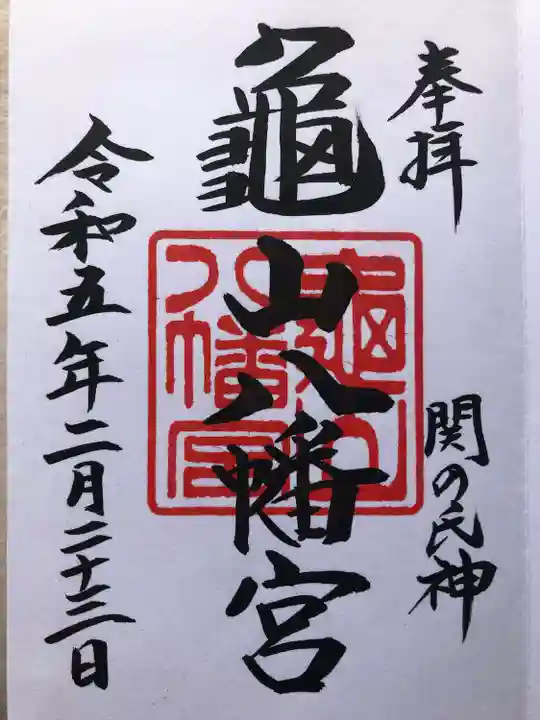 奉拝
関の氏神
龜山八幡宮
龜山八幡宮
令和五年二月二十三日